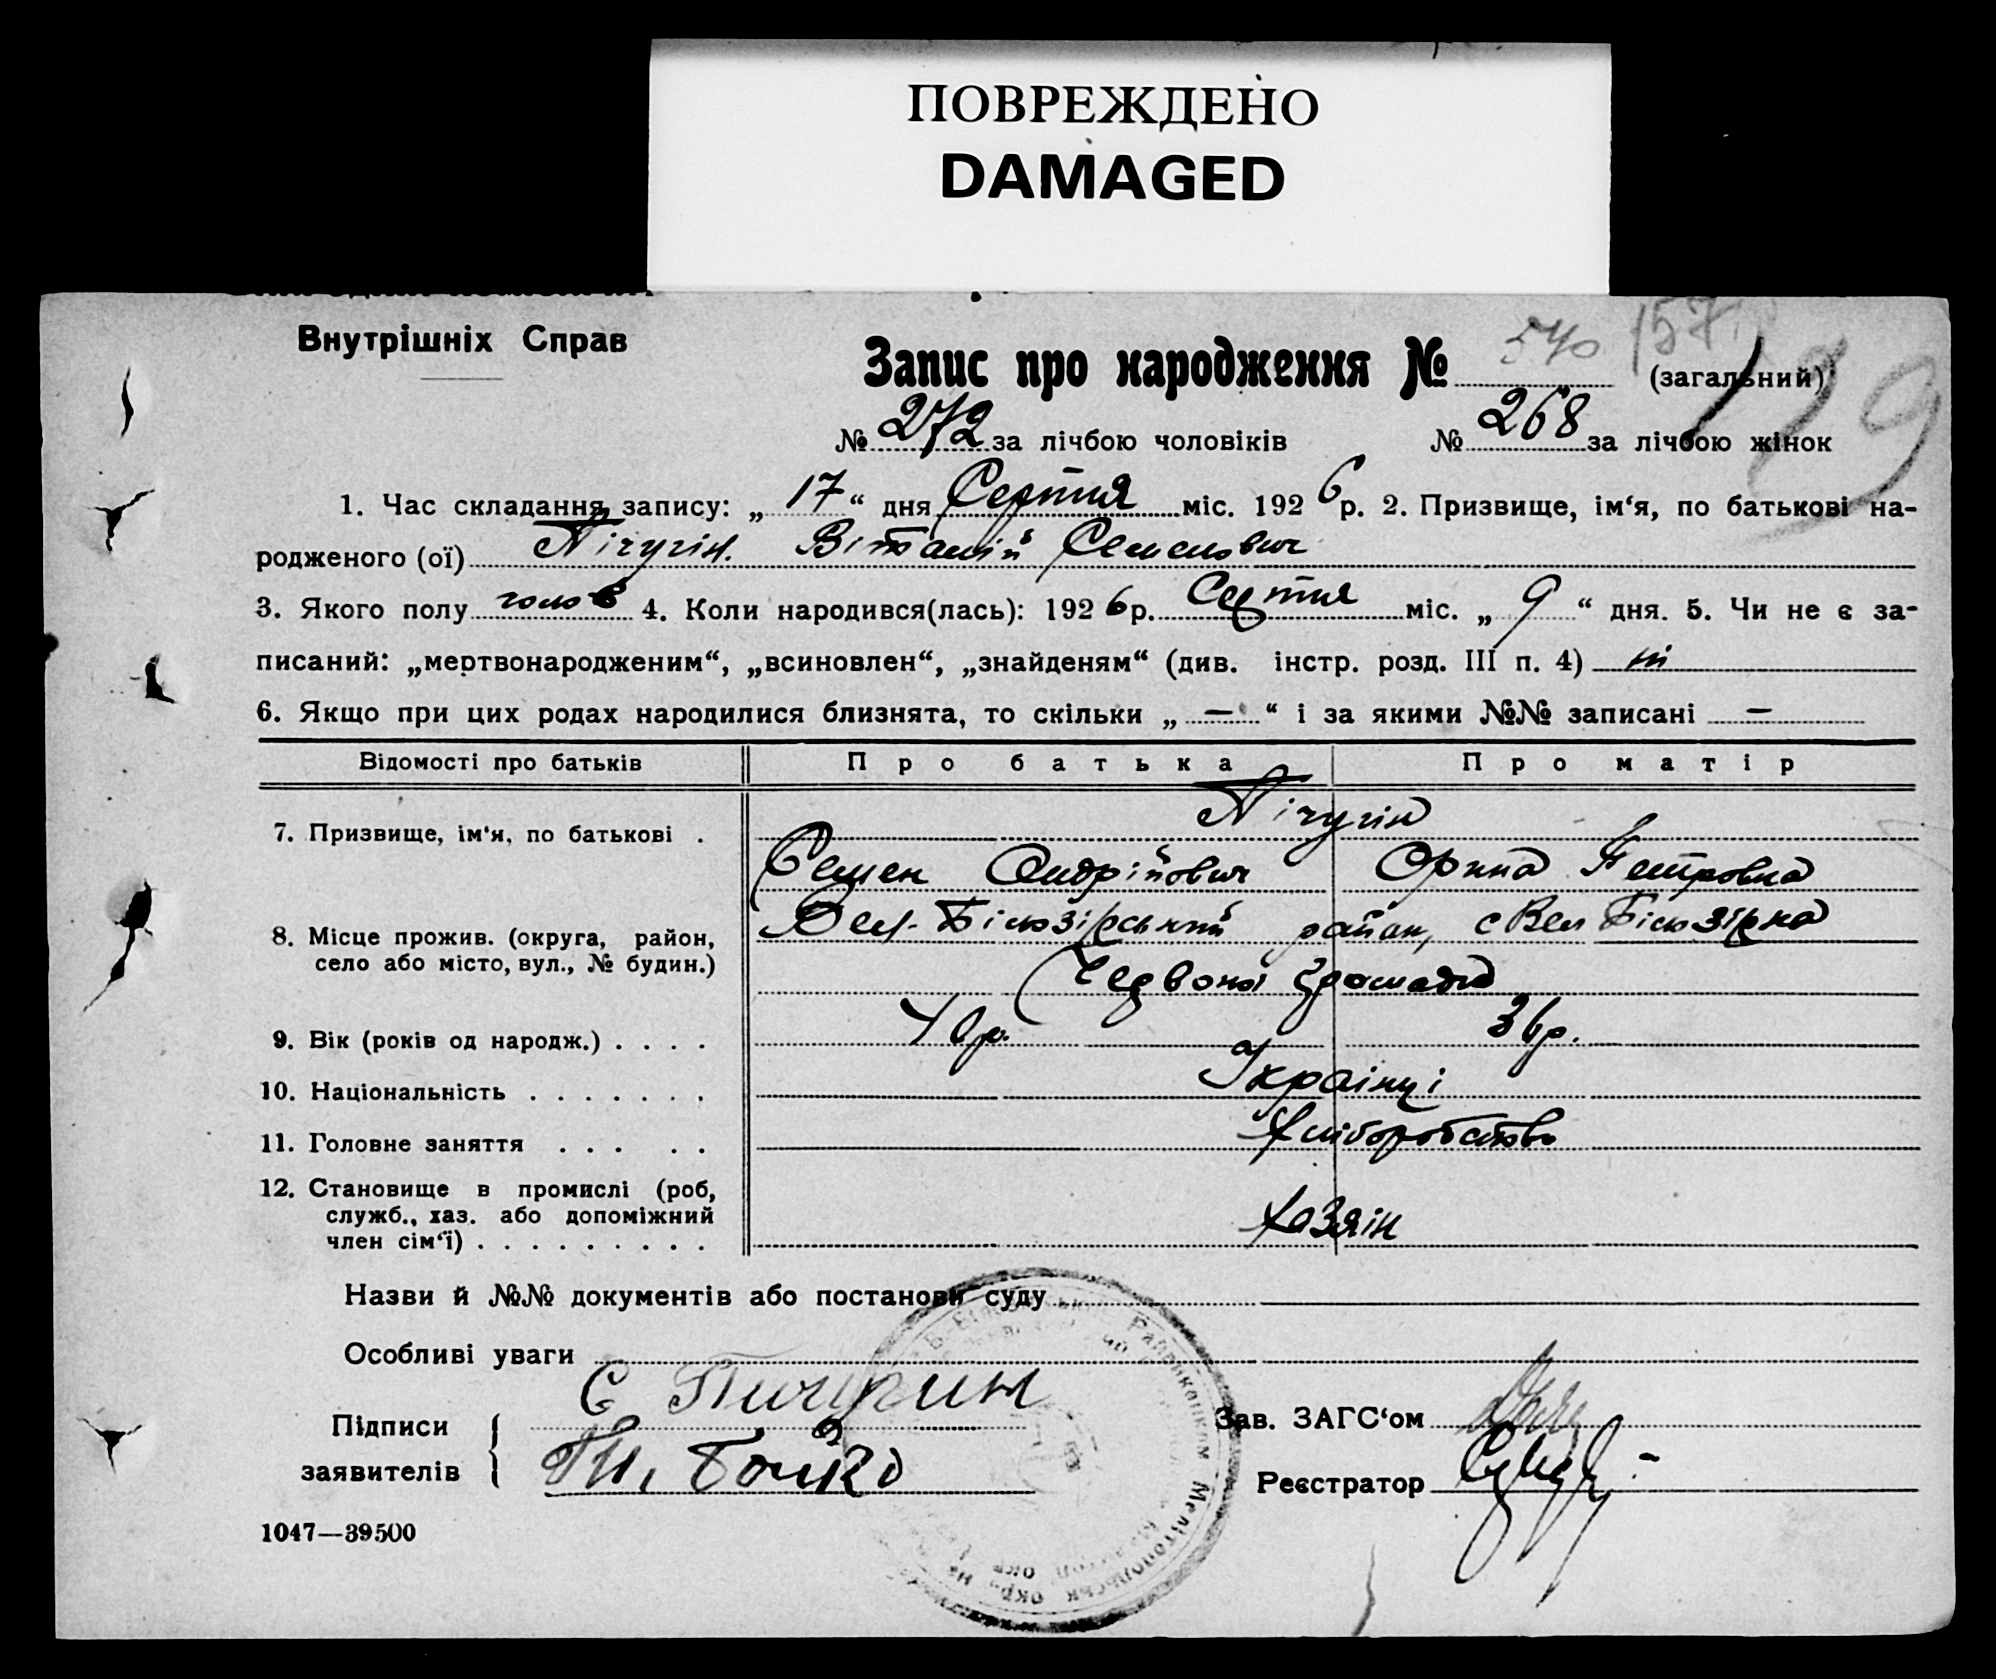 ПОВРЕЖДЕНО
DAMAGED
Внутрішніх Справ
Запис про народження № 540 (загальний)
157
139
№ 272 за лічбою чоловіків № 268 за лічбою жінок
1. Час складання запису: „ 17 “ дня Серпня міс. 192 6 р. 2. Призвище, ім‘я, по батькові на-
родженого (ої) Пічугін. Віталій Семенович
3. Якого полу чолов 4. Коли народився(лась): 192 6 р. Серпня міс. „ 9 “ дня. 5. Чи не є за-
писаний: „мертвонародженим“, „всиновлен“, „знайденям“ (див. інстр. розд. III п. 4) ні
6. Якщо при цих родах народилися близнята, то скільки „ — “ і за якими №№ записані —
Відомості про батьків Про батька Про матір
Пічугін
7. Призвище, ім‘я, по батькові .
Семен Андрійович Орина Петровна
8. Місце прожив. (округа, район,
село або місто, вул., № будин.)
Вел.-Білозірський район, с Вел Білозірка
Червоної Громади
9. Вік (років од народж.) . . . . 40р. 36р.
10. Національність . . . . . . . Українці
11. Головне заняття . . . . . Хліборобство
12. Становище в промислі (роб,
служб., хаз. або допоміжний
член сім‘ї) . . . . . . . . . Хазяїн
Назви й №№ документів або постанови суду
Особливі уваги
Підписи
заявителів
С Пичугин
Бойко
Зав. ЗАГС‘ом
Реєстратор
Райвиконком Мелітопольськ окр
1047—39500